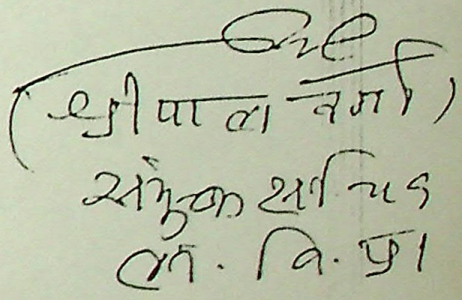 (श्रीपाल वर्मा)
संयुक्त सचिव
ल. वि. प्रा